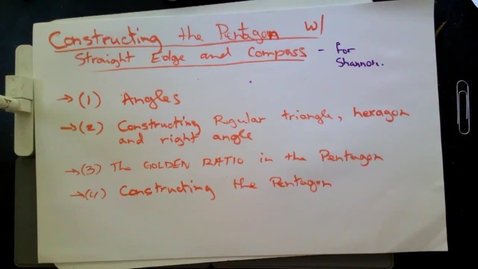 Constructing the Pentagon w/
Straight Edge and Compass - for
Shannon.
→(1) Angles
→(2) Constructing Regular triangle, hexagon
and right angle
→(3) The GOLDEN RATIO in the Pentagon
→(4) Constructing the Pentagon